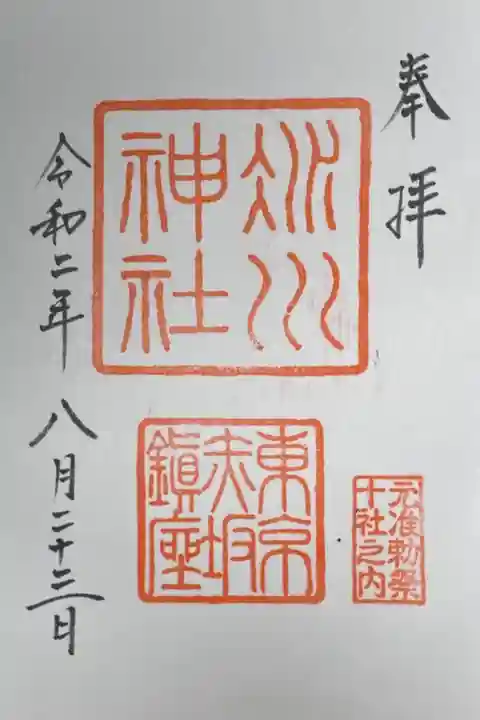 奉拝
氷川
神社
東京
赤坂
鎮座
元准勅祭
十社之内
令和二年 八月二十三日